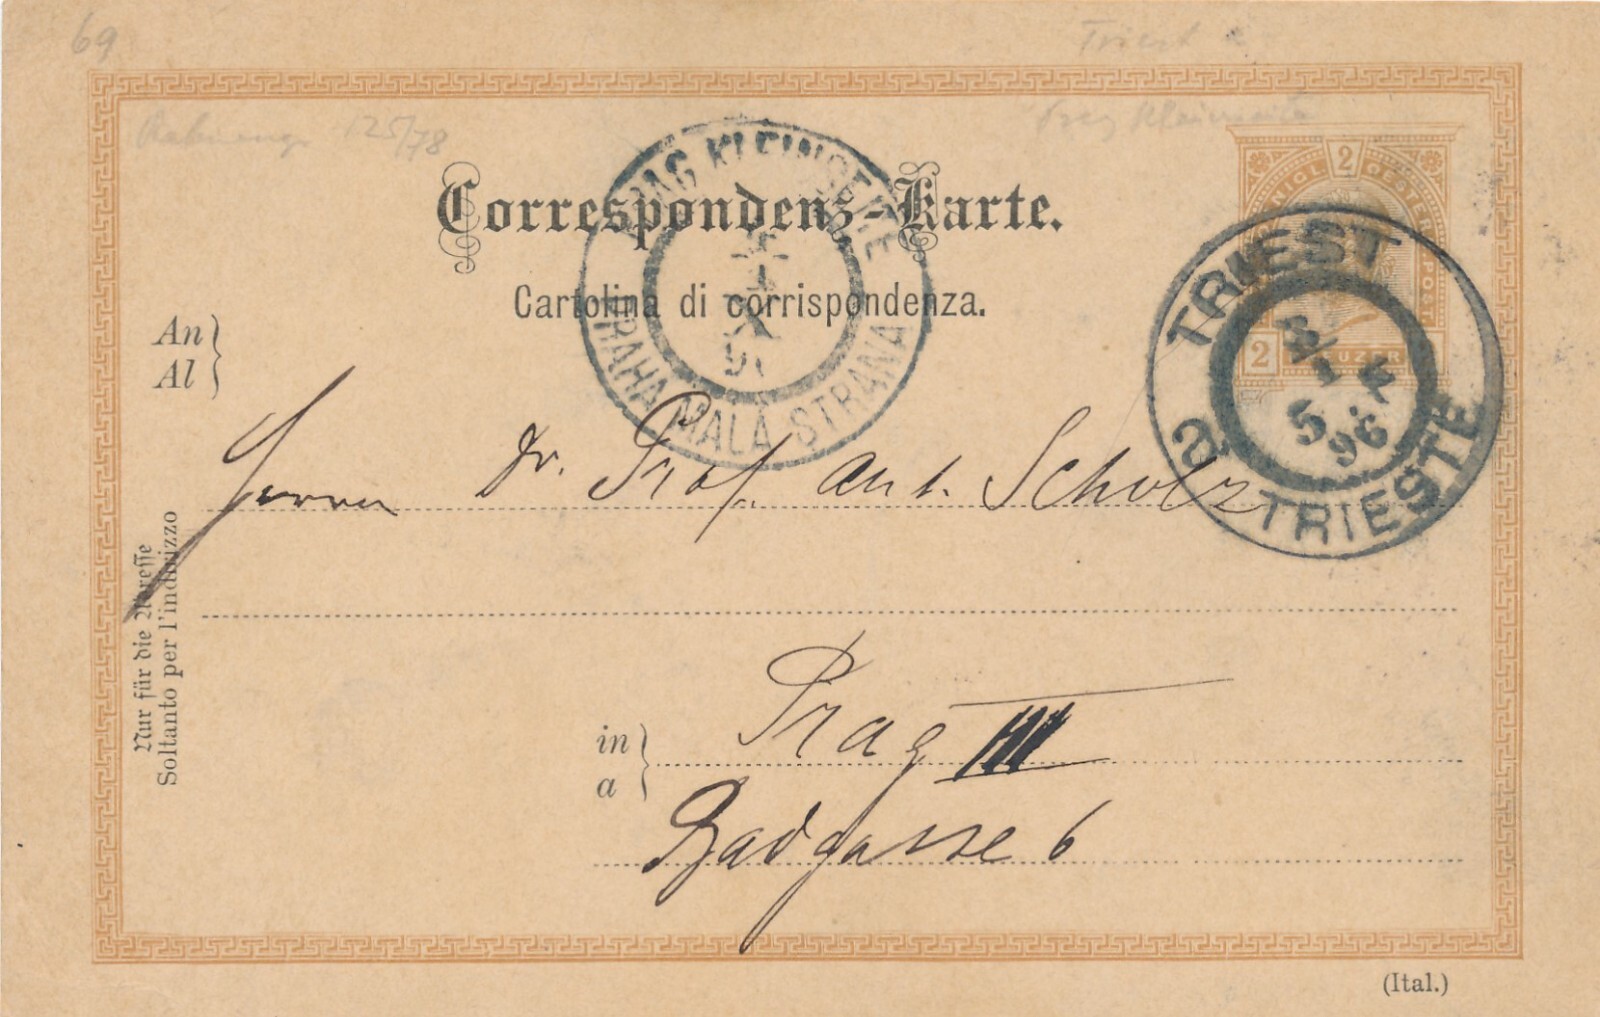 69
Triest
125/78
Correspondenz-Karte.
Cartolina di corrispondenza.
PRAG KLEINSEITE
X
PRAHA MALÁ STRANA
2
POST
2 KREUZER
TRIEST
5
96
TRIESTE
An
Al
Herrn Dr. Prof. Ant. Scholz
Nur für die Adresse
Soltanto per l'indirizzo
in
a
Prag III
Badgasse 6
(Ital.)